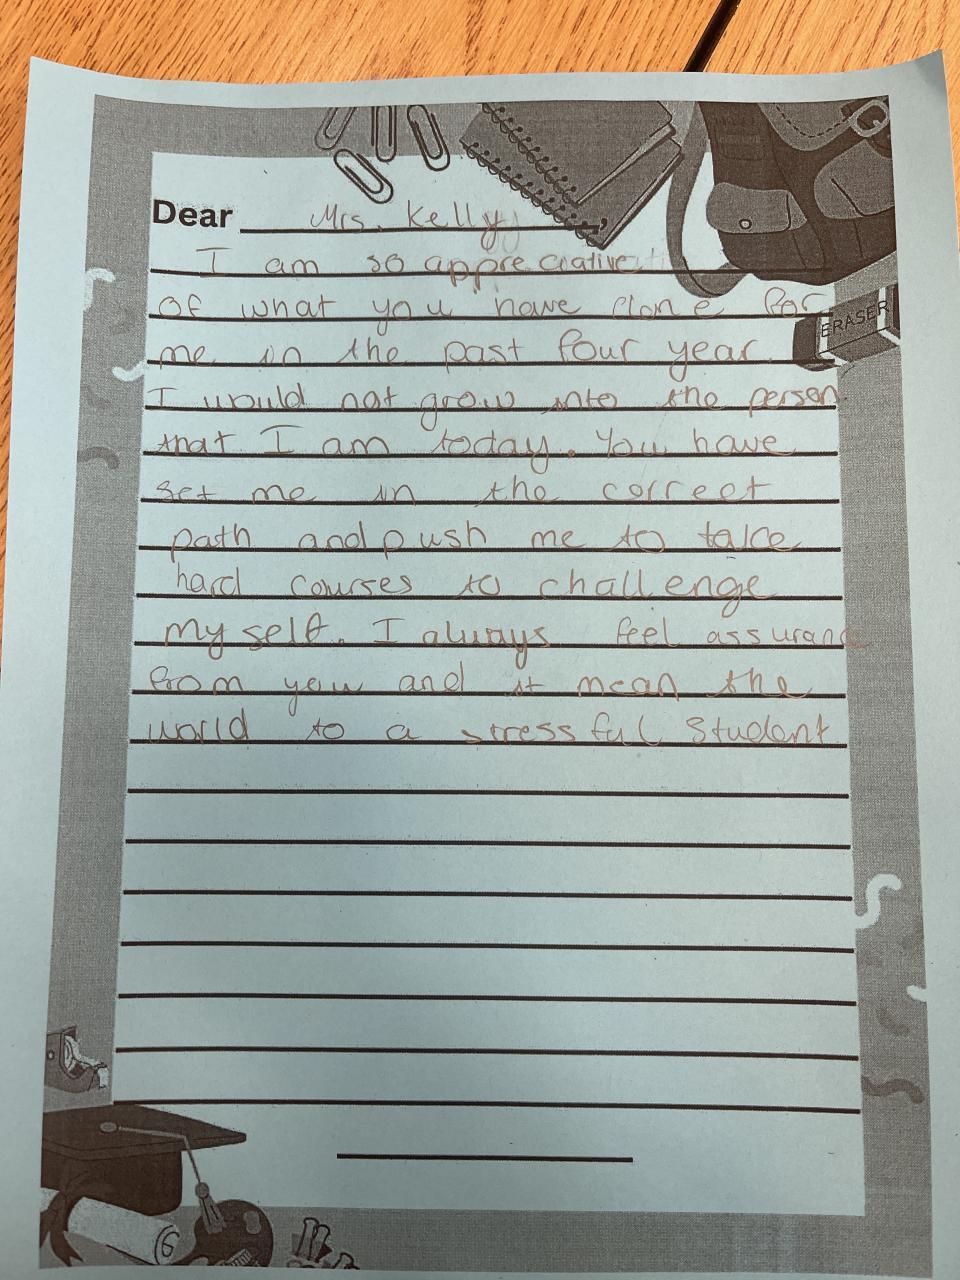 Dear Mrs. Kelly
I am so appreciative
of what you have done for
me in the past four year.
I would not grow into the person
that I am today. You have
set me in the correct
path and push me to take
hard courses to challenge
my self. I always feel assuranc
from you and it mean the
world to a stressful student
ERASER